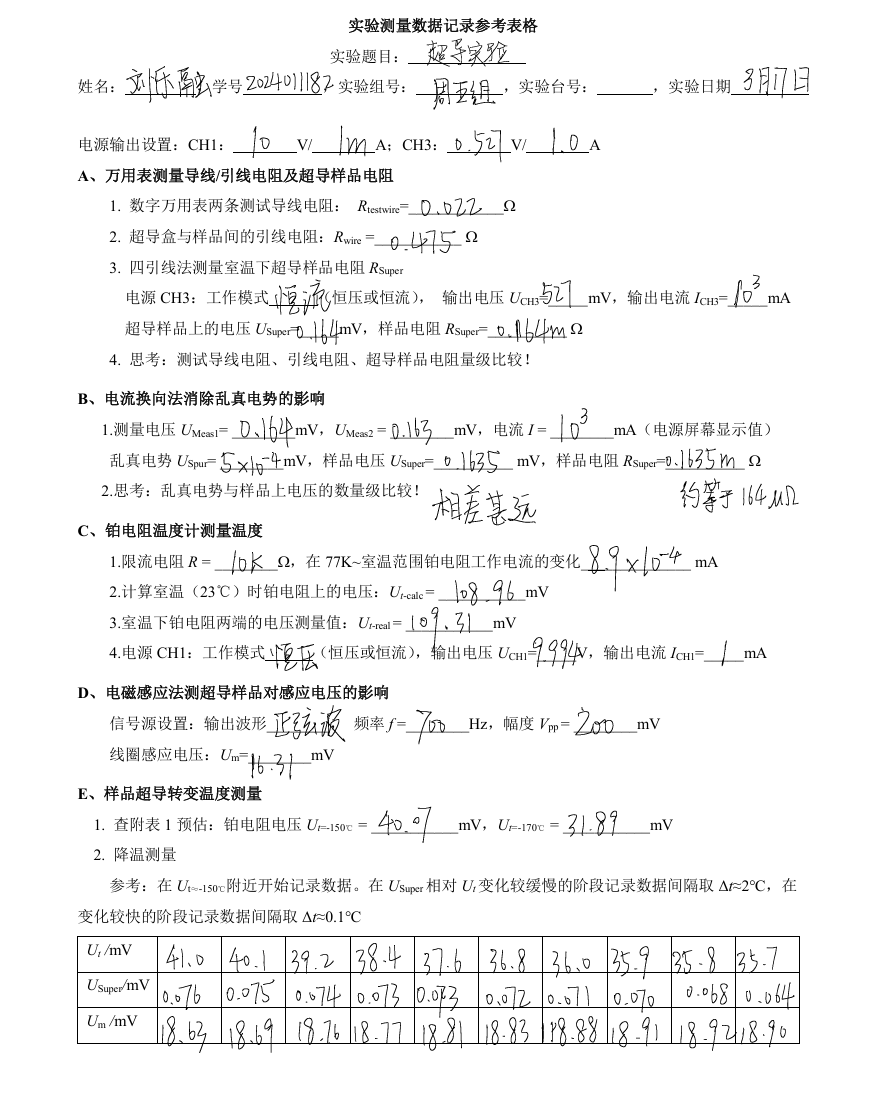 实验测量数据记录参考表格
实验题目： 超导实验
姓名： 刘乐融 学号 2024011182 实验组号： 周五组 ，实验台号： ，实验日期 3月17日
电源输出设置：CH1： 10 V/ 1m A；CH3： 0.527 V/ 1.0 A
A、万用表测量导线/引线电阻及超导样品电阻
1. 数字万用表两条测试导线电阻： Rtestwire= 0.022 Ω
2. 超导盒与样品间的引线电阻：Rwire = 0.475 Ω
3. 四引线法测量室温下超导样品电阻 RSuper
电源 CH3：工作模式 恒流 （恒压或恒流）， 输出电压 UCH3= 527 mV，输出电流 ICH3= 10³ mA
超导样品上的电压 USuper= 0.164 mV，样品电阻 RSuper= 0.164m Ω
4. 思考：测试导线电阻、引线电阻、超导样品电阻量级比较！
B、电流换向法消除乱真电势的影响
1.测量电压 UMeas1= 0.164 mV，UMeas2 = 0.163 mV，电流 I = 10³ mA（电源屏幕显示值）
乱真电势 USpur= 5×10⁻⁴ mV，样品电压 USuper= 0.1635 mV，样品电阻 RSuper= 0.1635m Ω
2.思考：乱真电势与样品上电压的数量级比较！ 相差甚远 约等于 164μΩ
C、铂电阻温度计测量温度
1.限流电阻 R = 10K Ω，在 77K~室温范围铂电阻工作电流的变化 8.9×10⁻⁴ mA
2.计算室温（23℃）时铂电阻上的电压：Ut-calc = 108.96 mV
3.室温下铂电阻两端的电压测量值：Ut-real = 109.31 mV
4.电源 CH1：工作模式 恒压 （恒压或恒流），输出电压 UCH1= 9.994 V，输出电流 ICH1= 1 mA
D、电磁感应法测超导样品对感应电压的影响
信号源设置：输出波形 正弦波 频率 f = 700 Hz，幅度 Vpp = 200 mV
线圈感应电压：Um= 16.31 mV
E、样品超导转变温度测量
1. 查附表 1 预估：铂电阻电压 Ut=-150℃ = 40.07 mV，Ut=-170℃ = 31.89 mV
2. 降温测量
参考：在 Ut≈-150℃附近开始记录数据。在 USuper 相对 Ut 变化较缓慢的阶段记录数据间隔取 Δt≈2℃，在
变化较快的阶段记录数据间隔取 Δt≈0.1℃
Ut /mV 41.0 40.1 39.2 38.4 37.6 36.8 36.0 35.9 35.8 35.7
USuper/mV 0.076 0.075 0.074 0.073 0.073 0.072 0.071 0.070 0.068 0.064
Um /mV 18.63 18.69 18.76 18.77 18.81 18.83 18.88 18.91 18.92 18.90